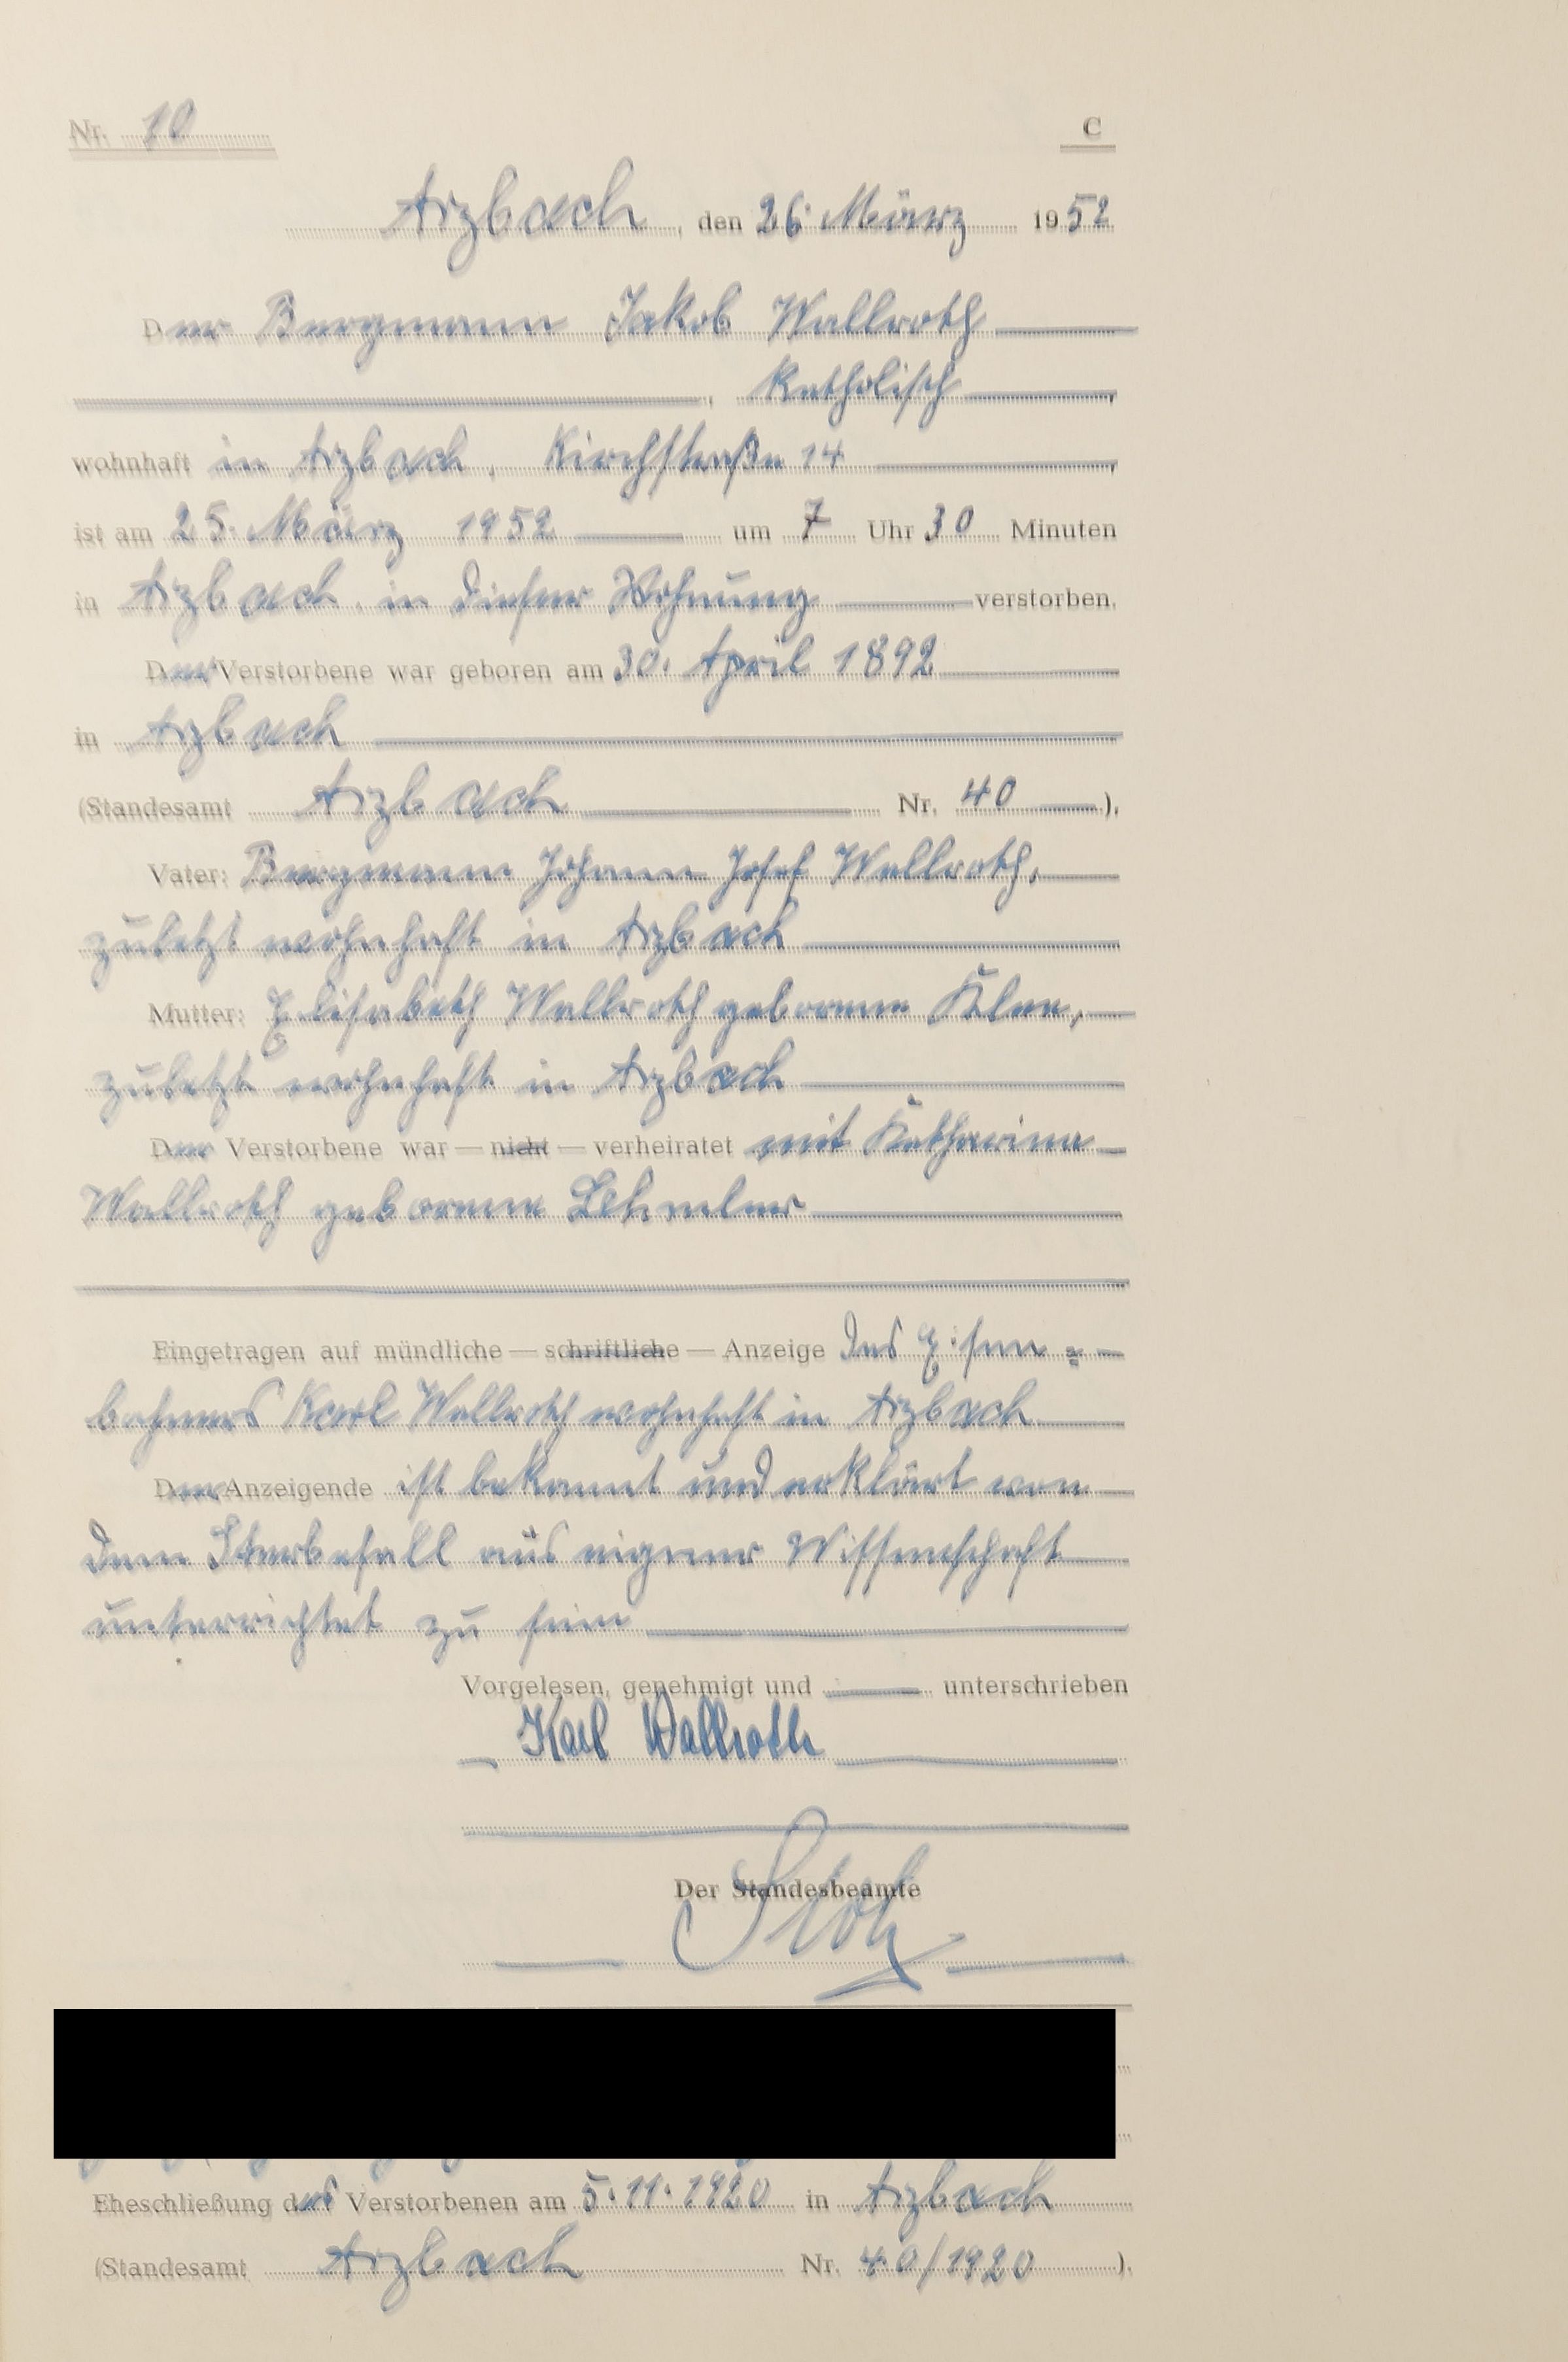 Nr. 10
C
Arzbach, den 26. März 1952
Der Bergmann Jakob Wallroth
, katholisch,
wohnhaft in Arzbach, Kirchstraße 14,
ist am 25. März 1952 um 7 Uhr 30 Minuten
in Arzbach, in dieser Wohnung verstorben.
Der Verstorbene war geboren am 30. April 1892
in Arzbach
(Standesamt Arzbach Nr. 40 ).
Vater: Bergmann Johann Josef Wallroth,
zuletzt wohnhaft in Arzbach
Mutter: Elisabeth Wallroth geborene Klee,
zuletzt wohnhaft in Arzbach
Der Verstorbene war — nicht — verheiratet mit Katharina
Wallroth geborene
Eingetragen auf mündliche — schriftliche — Anzeige des Eisen =
bahners Karl Wallroth wohnhaft in Arzbach
Der Anzeigende ist bekannt und erklärt von
dem Sterbefall aus eigener Wissenschaft
unterrichtet zu sein
Vorgelesen, genehmigt und unterschrieben
Karl Wallroth
Der Standesbeamte
Eheschließung des Verstorbenen am 5.11.1920 in Arzbach
(Standesamt Arzbach Nr. 40/1920 ).